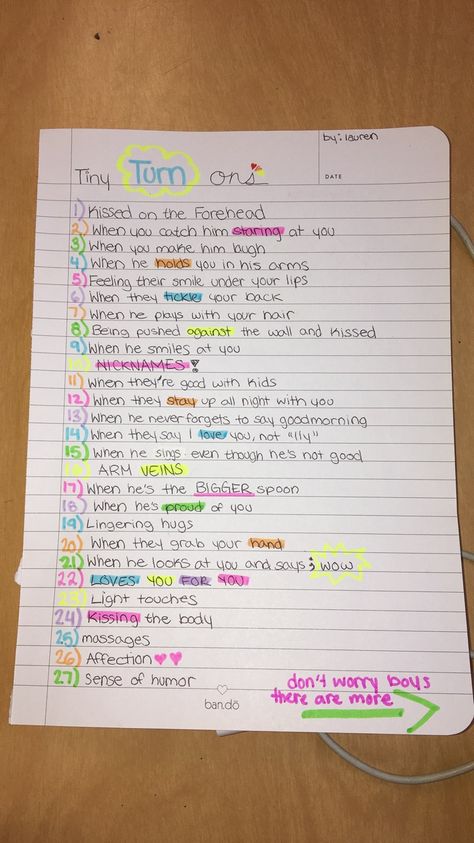 by: lauren
Tiny Turn ons
DATE
1) Kissed on the Forehead
2) When you catch him staring at you
3) When you make him laugh
4) When he holds you in his arms
5) Feeling their smile under your lips
6) When they tickle your back
7) When he plays with your hair
8) Being pushed against the wall and kissed
9) When he smiles at you
10) NICKNAMES!
11) When they're good with kids
12) When they stay up all night with you
13) When he never forgets to say goodmorning
14) When they say I love you, not "ily"
15) When he sings even though he's not good
16) ARM VEINS
17) When he's the BIGGER spoon
18) When he's proud of you
19) Lingering hugs
20) When they grab your hand
21) When he looks at you and says: wow
22) LOVES YOU FOR YOU
23) Light touches
24) Kissing the body
25) massages
26) Affection
27) Sense of humor
don't worry boys
there are more
ban.dō